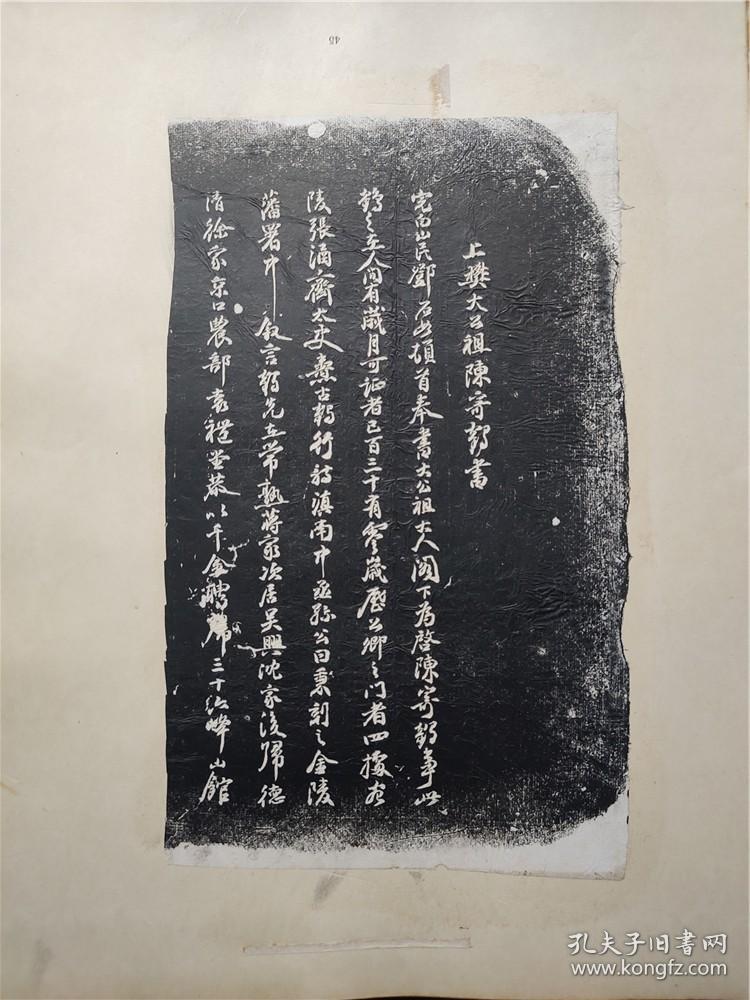 45
上樊大公祖陳寄鶴書
完白山民鄧石如頓首奉書大公祖大人閣下為啓陳寄鶴事此
鶴之在人間有歲月可証者已百三十有零歲歷公卿之門者四據宛
陵張涵齋太史燾古鶴行詩滇南中丞孫公曰秉刻之金陵
藩署中叙言鶴先在常熟蔣家次居吴興沈家後歸德
清徐家京口農部袁禮堂恭以千金聘歸三十峰山館
孔夫子旧书网
www.kongfz.com